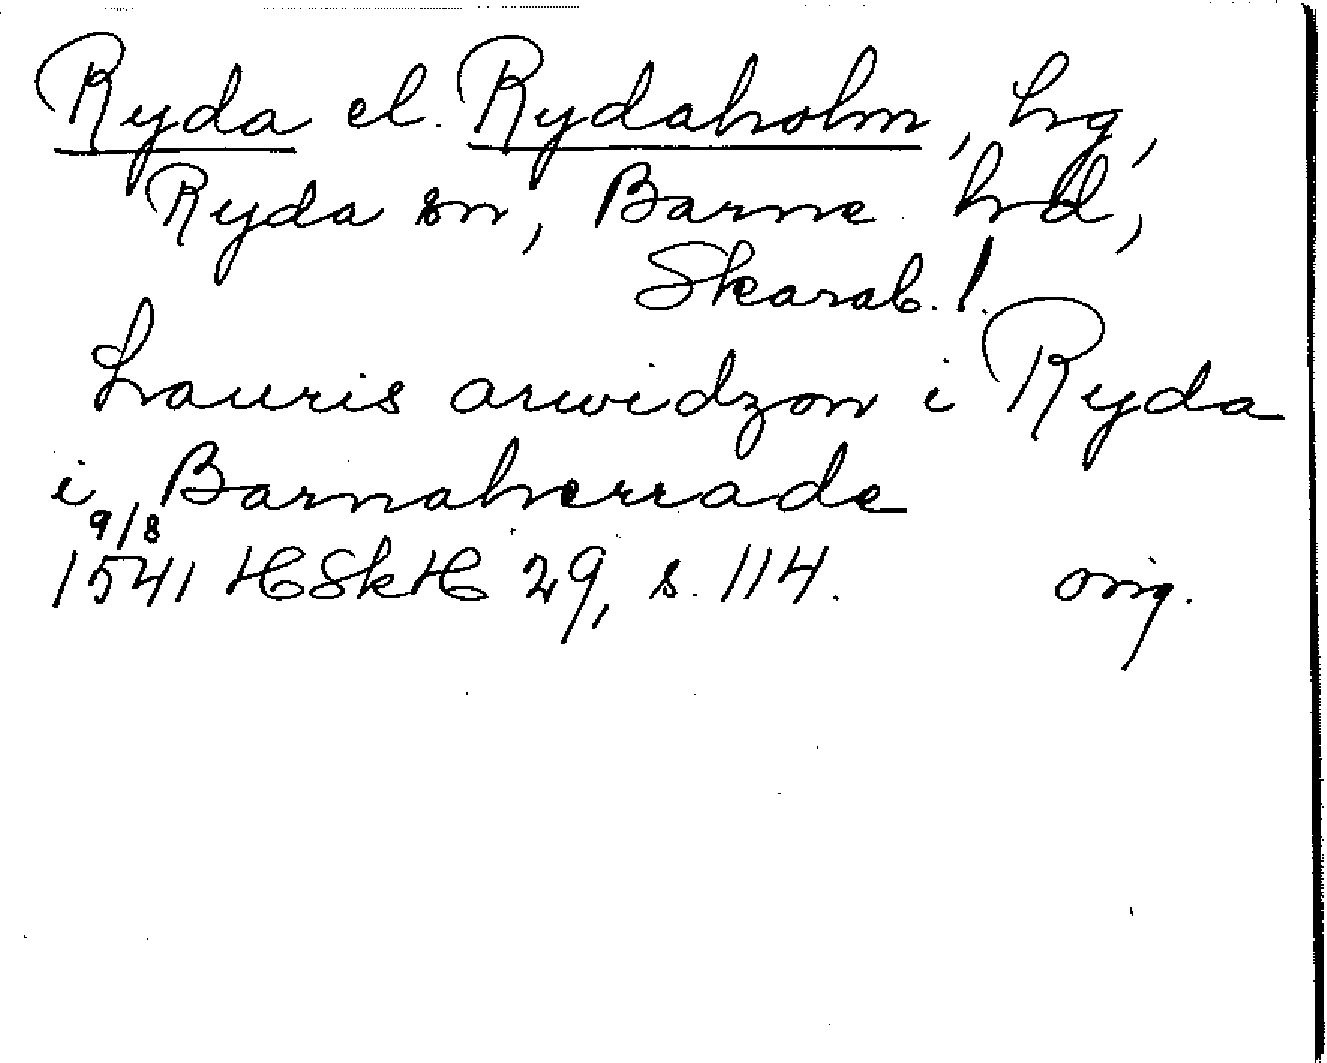 Ryda el. Rydaholm, hg,
Ryda sn, Barne hd,
Skarab. !
Lauris arwidzon i Ryda
i Barnaherrade
9/8
1541 HSkH 29, s. 114. orig.